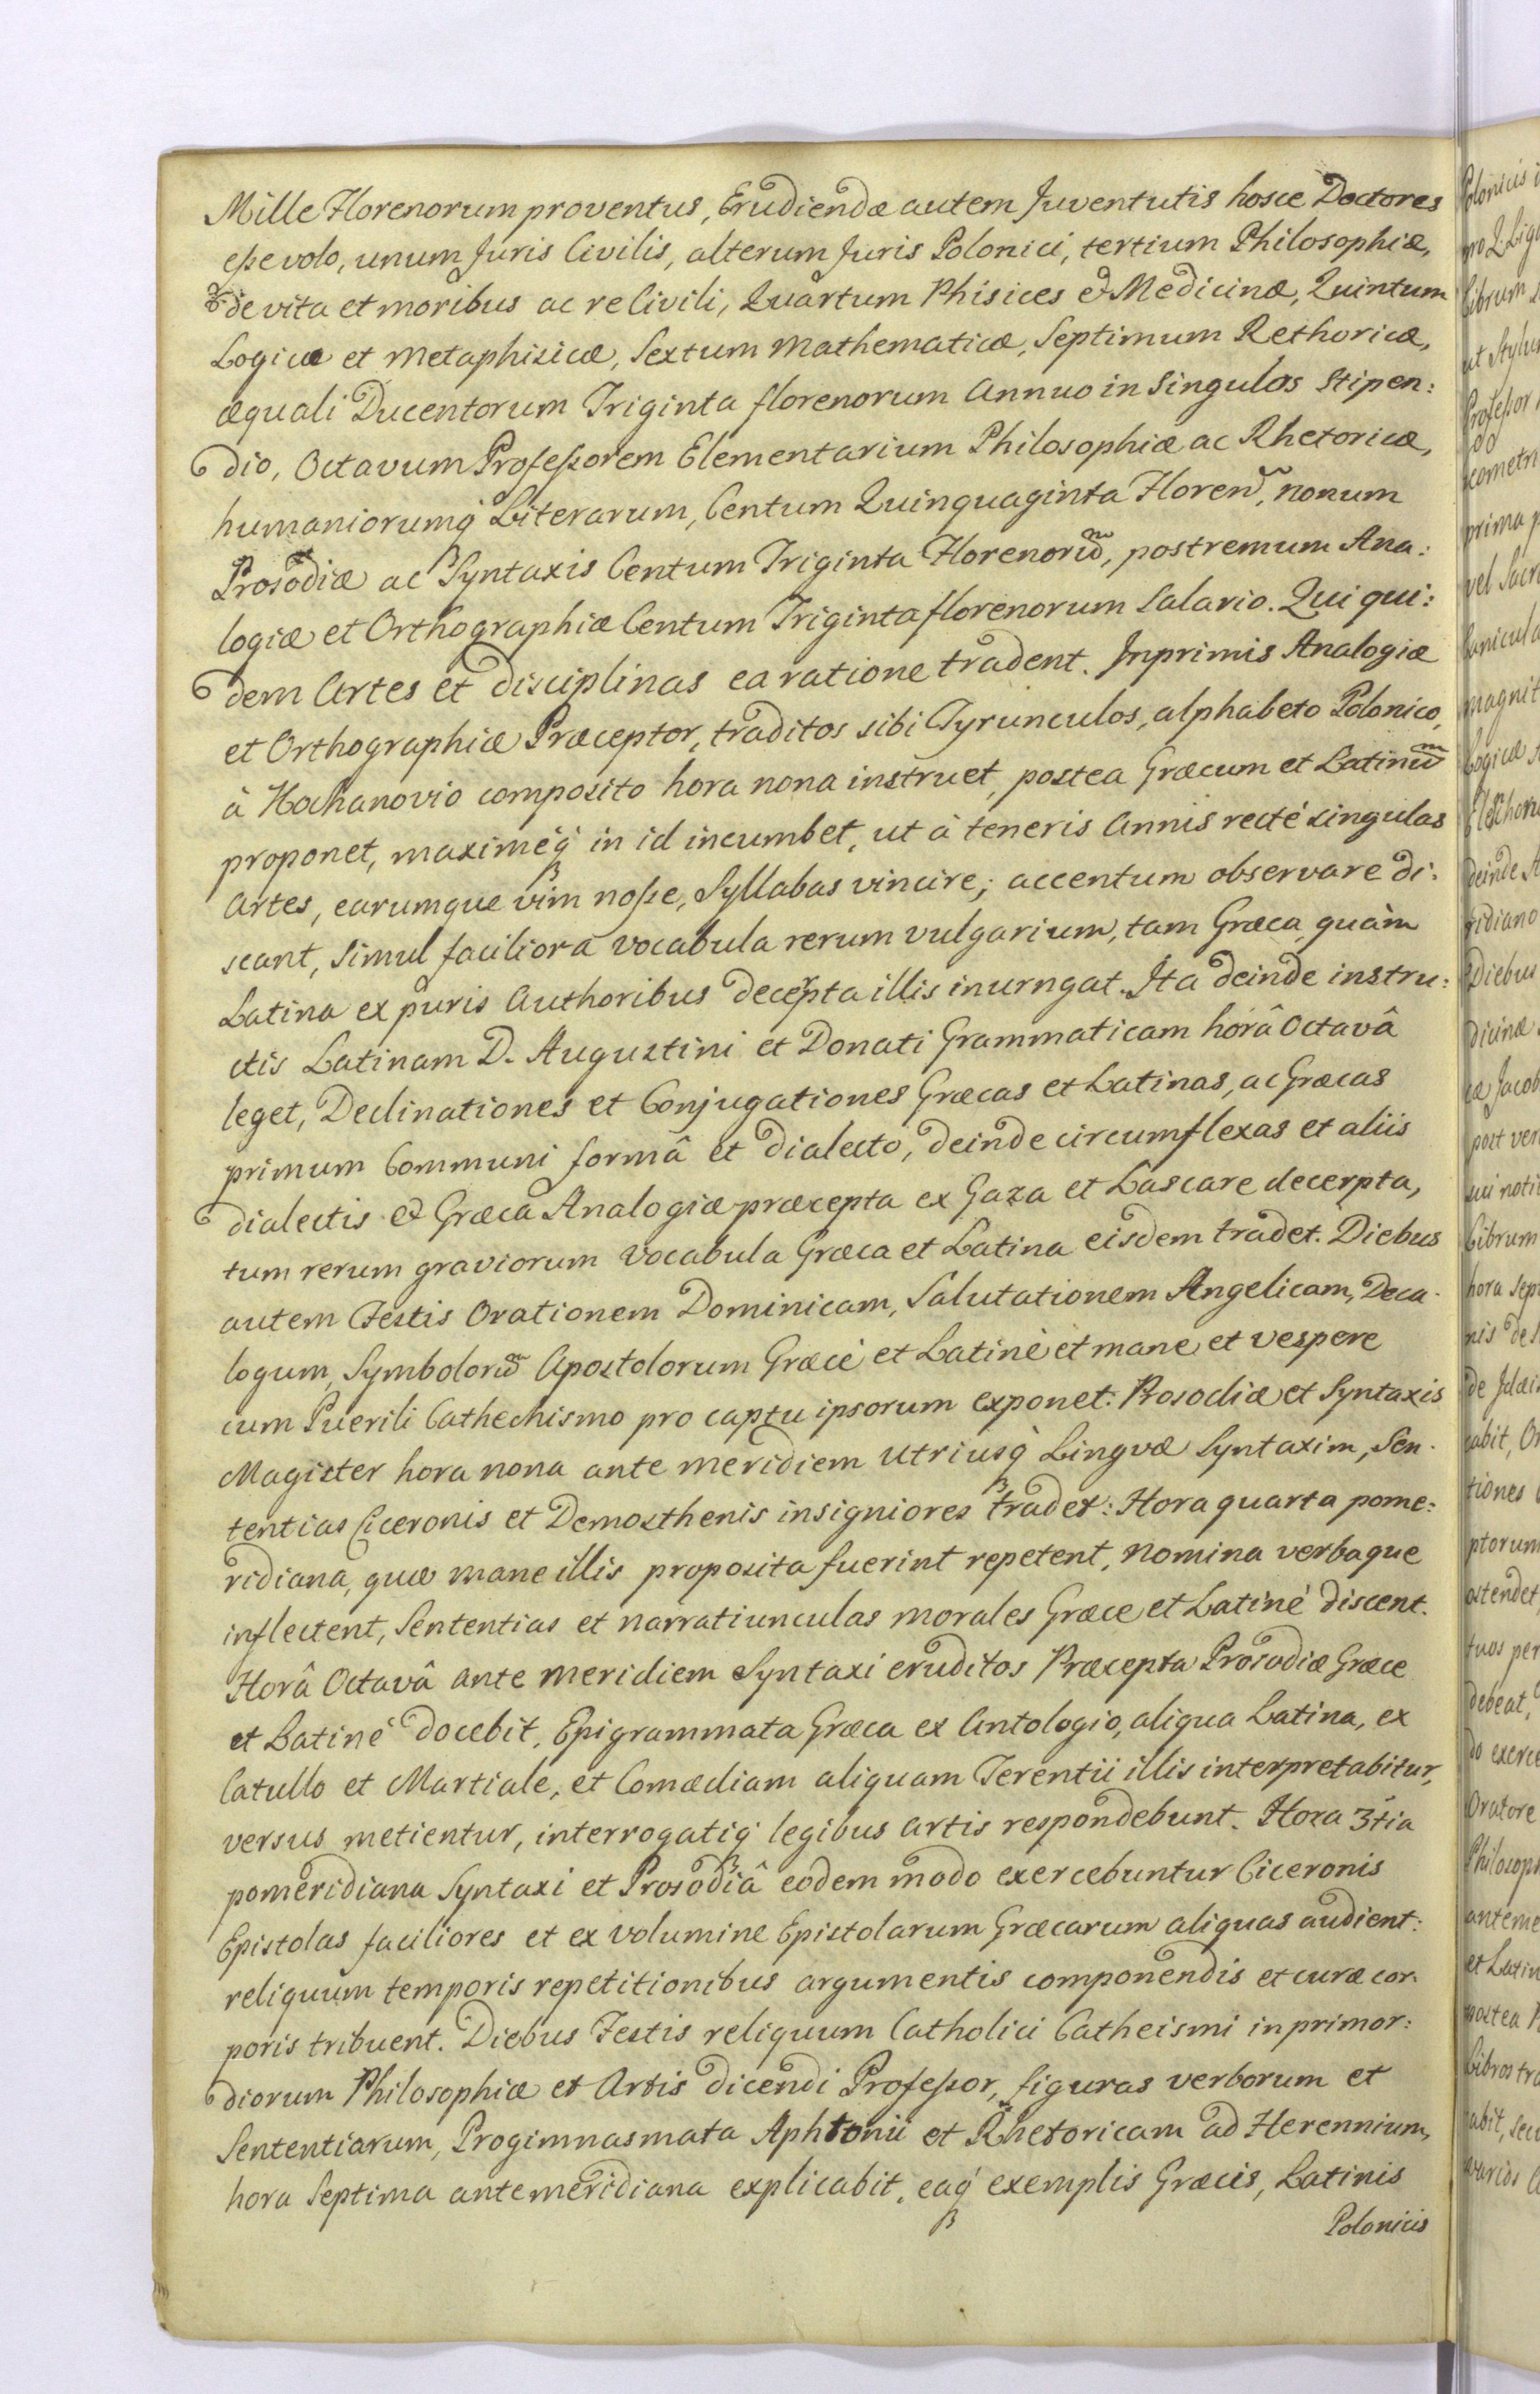 Mille Florenorum proventus, Erudiendæ autem Juventutis hosce Doctores
eße volo, unum Juris Civilis, alterum Juris Polonici, tertium Philosophiæ,
de vita et moribus ac re Civili, Quartum Phisices & Medicinæ, Quintum
Logicæ et Metaphisicæ, Sextum Mathematicæ, Septimum Rethoricæ,
æquali Ducentorum Triginta florenorum Annuo in Singulos Stipen:
dio, Octavum Profeßorem Elementarium Philosophiæ ac Rhetoricæ,
humaniorumq́ Literarum, Centum Quinquaginta Floren̄, nonum
Prosodiæ ac Syntaxis Centum Triginta Florenorū, postremum Ana:
logiæ et Orthographiæ Centum Triginta florenorum Salario. Qui qui:
dem Artes et disciplinas ea ratione tradent. Inprimis Analogiæ
et Orthographiæ Præceptor, traditos sibi Tyrunculos, alphabeto Polonico,
à Kochanovio composito hora nona instruet, postea Græcum et Latinū
proponet, maximéq́ in id incumbet, ut à teneris Annis recté singulas
Artes, earumque vim noße, Syllabas vincire; accentum observare di:
scant, Simul faciliora vocabula rerum vulgarium, tam Græca quàm
Latina ex puris Authoribus decerpta illis inurngat. Ita deinde instru:
ctis Latinam D. Augustini et Donati Grammaticam horâ Octavâ
leget, Declinationes et Conjugationes Græcas et Latinas, ac Græcas
primum Communi formâ et dialecto, deinde circumflexas et aliis
dialectis & Græca Analogiæ præcepta ex Gaza et Lascare decerpta,
tum rerum graviorum vocabula Græca et Latina eisdem tradet. Diebus
autem Festis Orationem Dominicam, Salutationem Angelicam, Deca-
logum, Symbolorū Apostolorum Græcè et Latinè et mane et vespere
cum Puerili Cathechismo pro captu ipsorum exponet: Prosodiæ et Syntaxis
Magister hora nona ante meridiem utriusq́ Lingvæ Syntaxim, Sen-
tentias Ciceronis et Demosthenis insigniores tradet: Hora quarta pome:
ridiana, quæ mane illis proposita fuerint repetent, Nomina verbaque
inflectent, Sententias et narratiunculas morales Græce et Latiné discent.
Horâ Octavâ ante meridiem Syntaxi eruditos Præcepta Prosodiæ Græce
et Latiné docebit, Epigrammata Græca ex Antologio, aliqua Latina, ex
Catullo et Martiale, et Comædiam aliquam Terentii illis interpretabitur,
versus metientur, interrogatiq́ legibus artis respondebunt. Hora 3tia
pomeridiana Syntaxi et Prosodiâ eodem modo exercebuntur Ciceronis
Epistolas faciliores et ex volumine Epistolarum Græcarum aliquas audient:
reliquum temporis repetitionibus argumentis componendis et curæ cor-
poris tribuent. Diebus Festis reliquum Catholici Catheismi in primor:
diorum Philosophiæ et Artis dicendi Profeßor, figuras verborum et
Sententiarum, Progimnasmata Aphtonii et Rhetoricam ad Herennium,
hora Septima antemeridiana explicabit, eaq́ exemplis Græcis, Latinis
Polonicis